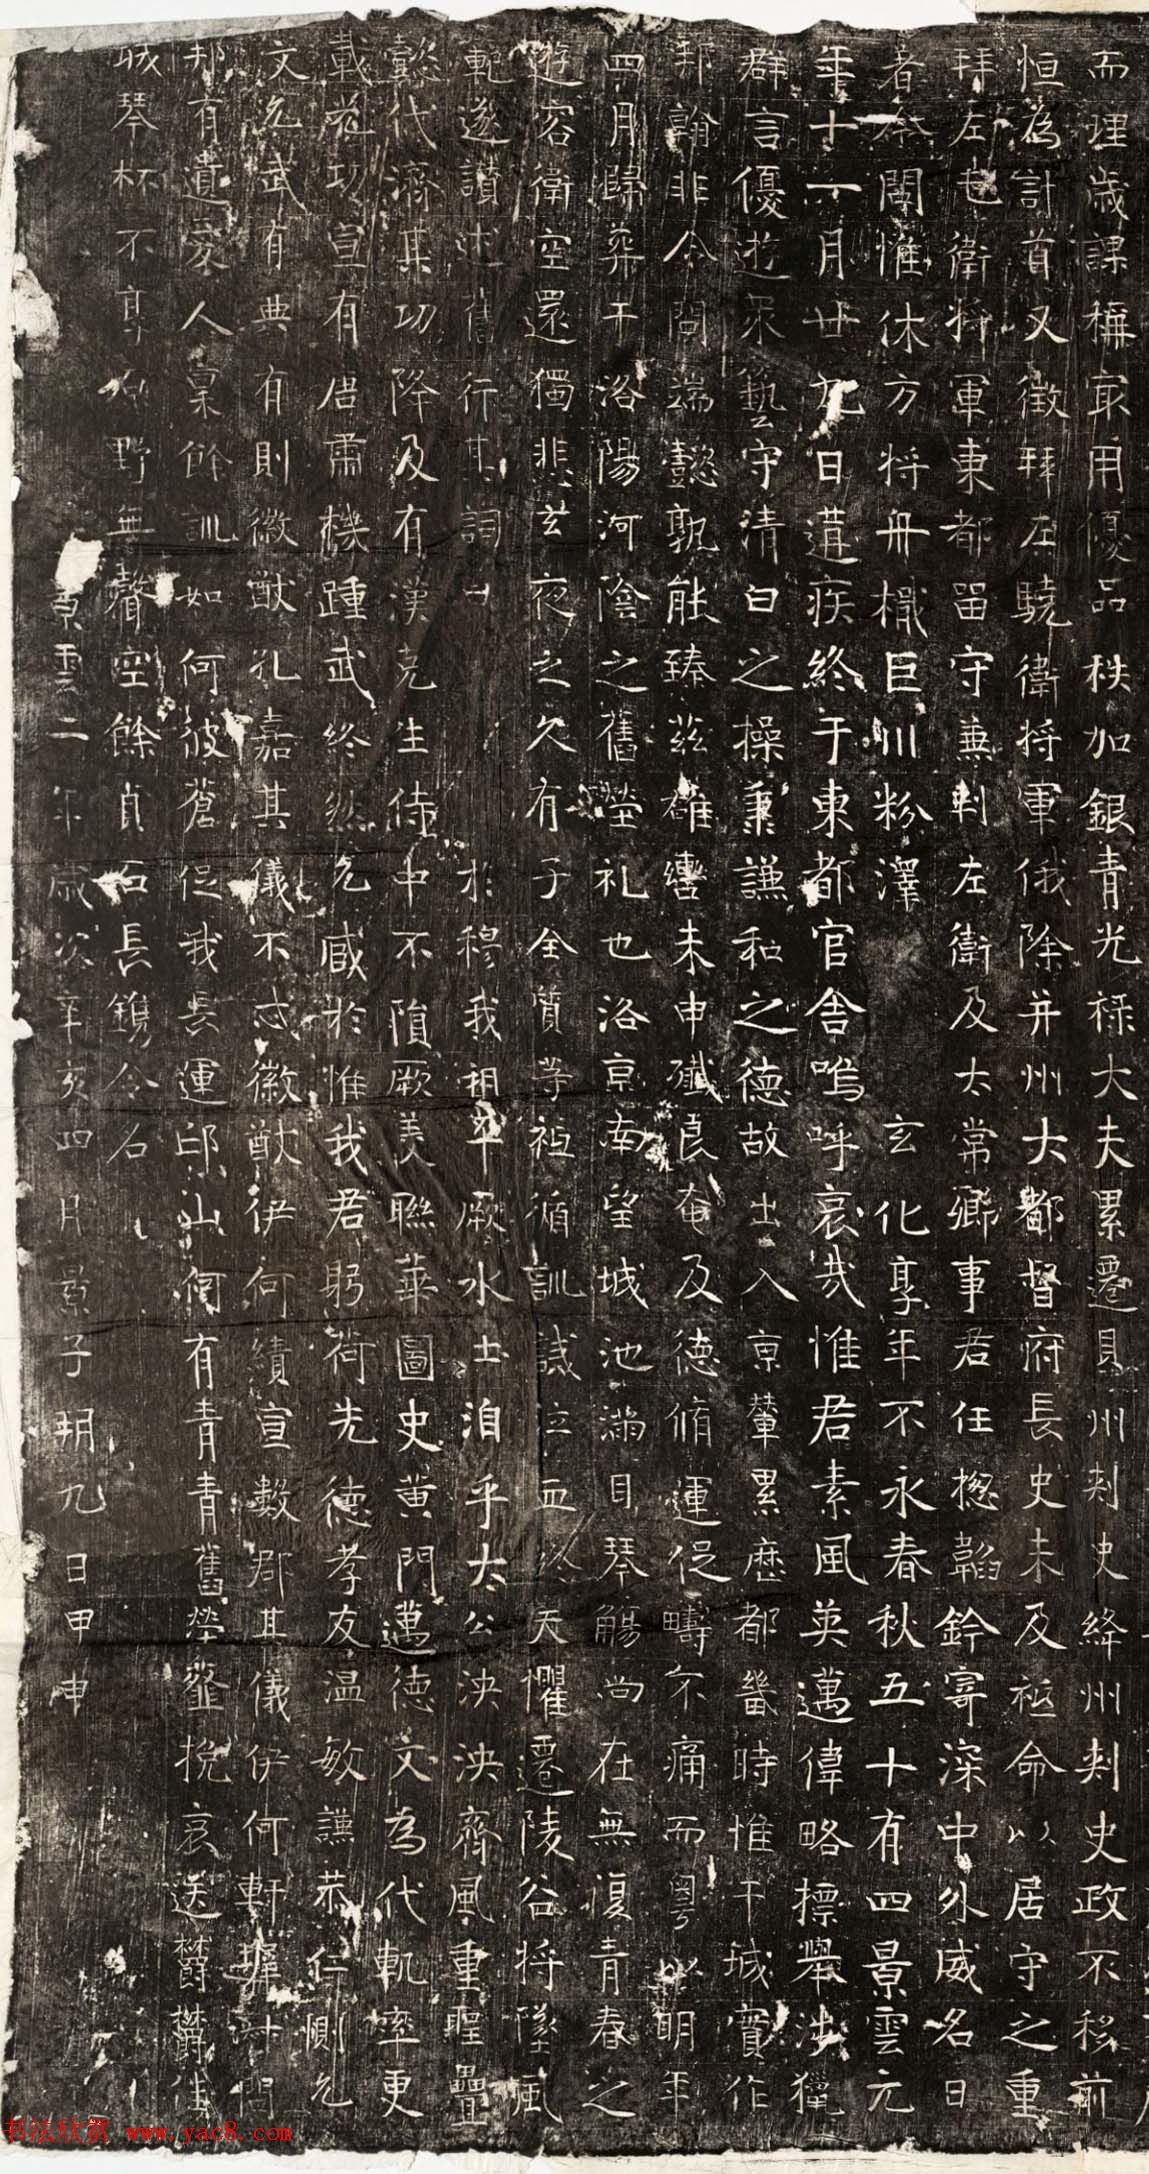 而理歲課稱冣用優品秩加銀青光祿大夫累遷貝州刾史絳州刾史政不移前
恒為計首又徵拜右驍衛將軍俄除并州大都督府長史未及祗命以居守之重
拜左屯衛將軍東都留守兼判左衛及太常卿事君任揔韜鈐寄深中外威名日
者本閫惟休方將舟檝巨川粉澤玄化享年不永春秋五十有四景雲元
年十一月廿九日遘疾終于東都官舍嗚呼哀哉惟君素風英邁偉略摽舉涉獵
群言優遊衆藝守清白之操秉謙和之德故出入京輦累歷都畿時惟干城寔作
邦翰非令問端懿孰能臻茲雄轡未申殲良奄及德脩運促疇不痛而粤以明年
四月歸葬于洛陽河陰之舊塋礼也洛京南望城池滿目琴觴尚在無復青春之
遊容衛空還獨悲玄夜之久有子全質等祗循訓誡立血終天懼遷陵谷將墜風
範遂讃述舊行其詞曰於穆我祖平厥水土洎乎太公泱泱齊風重聖疊
懿代濟其功降及有漢克生侍中不隕厥美聯華圖史黃門邁德文為代軌率更
載德功宣有周肅機踵武終然允臧於惟我君躬荷先德孝友溫敏謙恭仁惻允
文允武有典有則徽猷孔嘉其儀不忒徽猷伊何績宣數郡其儀伊何軒墀訃問
邦有遺愛人稟餘訓如何彼蒼促我長運邙山何有青青舊塋薤挽哀送鬱鬱佳
城琴杯不享原野無聲空餘貞石長鐫令名
景雲二年歲次辛亥四月景子朔九日甲申
书法欣赏 www.yac8.com